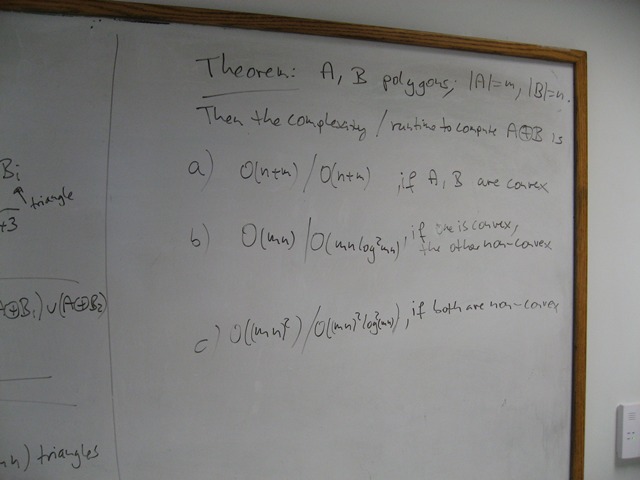 Theorem: A, B polygons; |A|=m, |B|=n.
Then the complexity / runtime to compute A⊕B is
a) O(n+m) / O(n+m), if A, B are convex
b) O(mn) / O(mn log²mn), if one is convex,
the other non-convex
c) O((mn)²) / O((mn)² log²(mn)), if both are non-convex
Bi
triangle
+3
A⊕B1) ∪ (A⊕B2)
mn) triangles